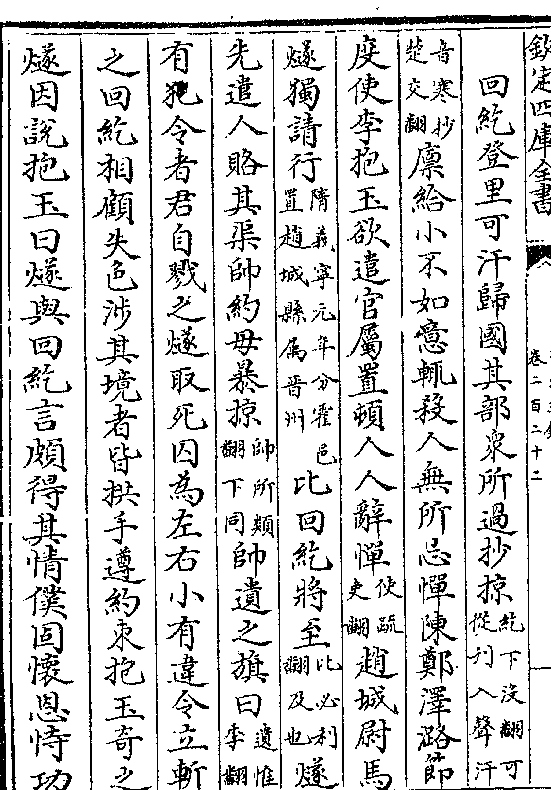 欽定四庫全書
卷二百二十二
回紇登里可汗歸國其部衆所過抄掠紇下没翻可從刋入聲汗
音寒抄楚交翻廪給小不如意輒殺人無所忌憚陳鄭澤潞節
度使李抱玉欲遣官屬置頓人人辭憚使疏吏翻趙城尉馬
燧獨請行隋義寧元年分霍邑置趙城縣屬晉州比回紇將至比必利翻及也燧
先遣人賂其渠帥約毋暴掠帥所類翻下同帥遺之旗曰遺惟季翻
有犯令者君自戮之燧取死囚為左右小有違令立斬
之回紇相顧失色涉其境者皆拱手遵約束抱玉奇之
燧因說抱玉曰燧與回紇言頗得其情僕固懷恩恃功